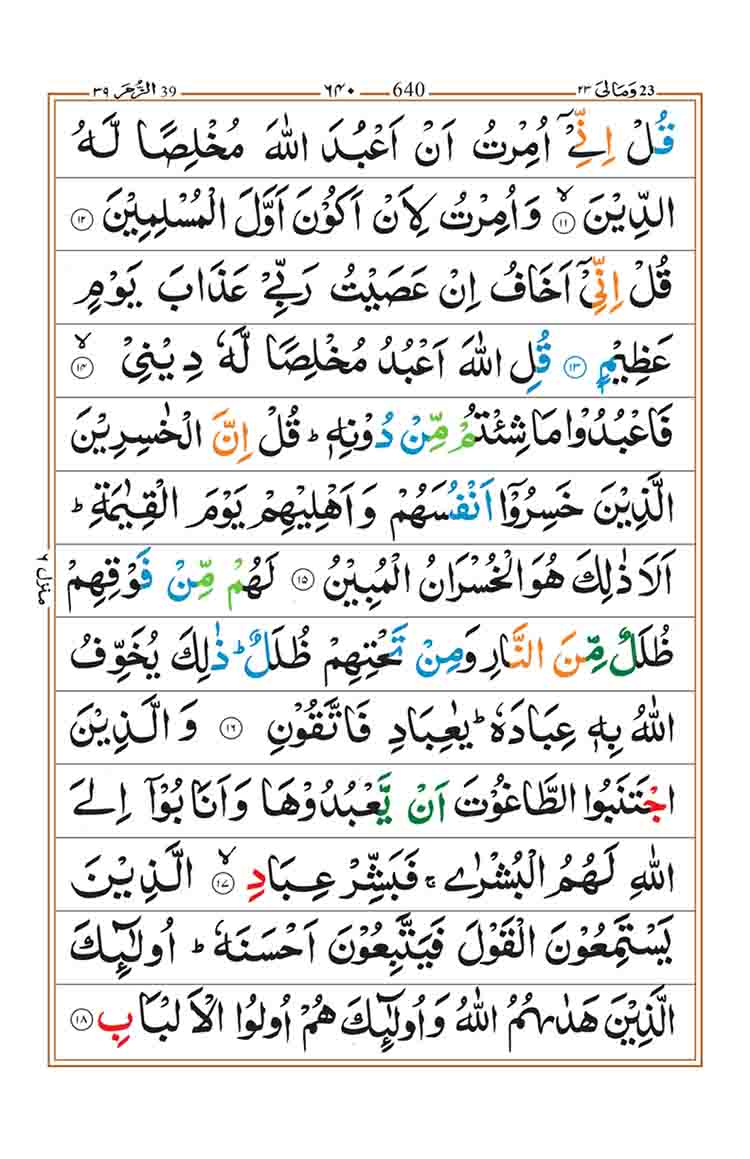 ٣٩ الزُّمَر 39 ٦٤٠ 640 ٢٣ وَمَالِیَ 23
قُلْ اِنِّیْۤ اُمِرْتُ اَنْ اَعْبُدَ اللّٰهَ مُخْلِصًا لَّهُ
الدِّیْنَ ۙ۝۱۱ وَاُمِرْتُ لِاَنْ اَكُوْنَ اَوَّلَ الْمُسْلِمِیْنَ ۝۱۲
قُلْ اِنِّیْۤ اَخَافُ اِنْ عَصَیْتُ رَبِّیْ عَذَابَ یَوْمٍ
عَظِیْمٍ ۝۱۳ قُلِ اللّٰهَ اَعْبُدُ مُخْلِصًا لَّهٗ دِیْنِیْ ۙ۝۱۴
فَاعْبُدُوْا مَا شِئْتُمْ مِّنْ دُوْنِهٖ ؕ قُلْ اِنَّ الْخٰسِرِیْنَ
الَّذِیْنَ خَسِرُوْۤا اَنْفُسَهُمْ وَاَهْلِیْهِمْ یَوْمَ الْقِیٰمَةِ ؕ
اَلَا ذٰلِكَ هُوَ الْخُسْرَانُ الْمُبِیْنُ ۝۱۵ لَهُمْ مِّنْ فَوْقِهِمْ
ظُلَلٌ مِّنَ النَّارِ وَمِنْ تَحْتِهِمْ ظُلَلٌ ؕ ذٰلِكَ یُخَوِّفُ
اللّٰهُ بِهٖ عِبَادَهٗ ؕ یٰعِبَادِ فَاتَّقُوْنِ ۝۱۶ وَالَّذِیْنَ
اجْتَنَبُوا الطَّاغُوْتَ اَنْ یَّعْبُدُوْهَا وَاَنَابُوْۤا اِلَی
اللّٰهِ لَهُمُ الْبُشْرٰی ۚ فَبَشِّرْ عِبَادِ ۙ۝۱۷ الَّذِیْنَ
یَسْتَمِعُوْنَ الْقَوْلَ فَیَتَّبِعُوْنَ اَحْسَنَهٗ ؕ اُولٰٓئِكَ
الَّذِیْنَ هَدٰىهُمُ اللّٰهُ وَاُولٰٓئِكَ هُمْ اُولُوا الْاَلْبَابِ ۝۱۸
منزل ٦